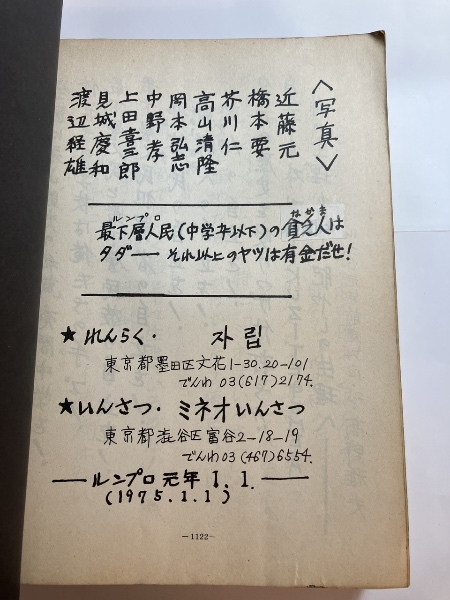 〈写真〉
近藤元
橋本要
芥川仁
高山清隆
岡本弘志
中野孝
上田喜三郎
見城慶和
渡辺経雄
ルンプロ なかま
最下層人民(中学卆以下)の貧乏人は
タダー それ以上のヤツは有金だせ!
★れんらく・ 자립
東京都墨田区文花1-30.20-101
でんわ 03(617)2174.
★いんさつ・ミネオいんさつ
東京都渋谷区富谷2-18-19
でんわ 03(467)6554.
—ルンプロ元年1.1.—
(1975.1.1)
—1122—